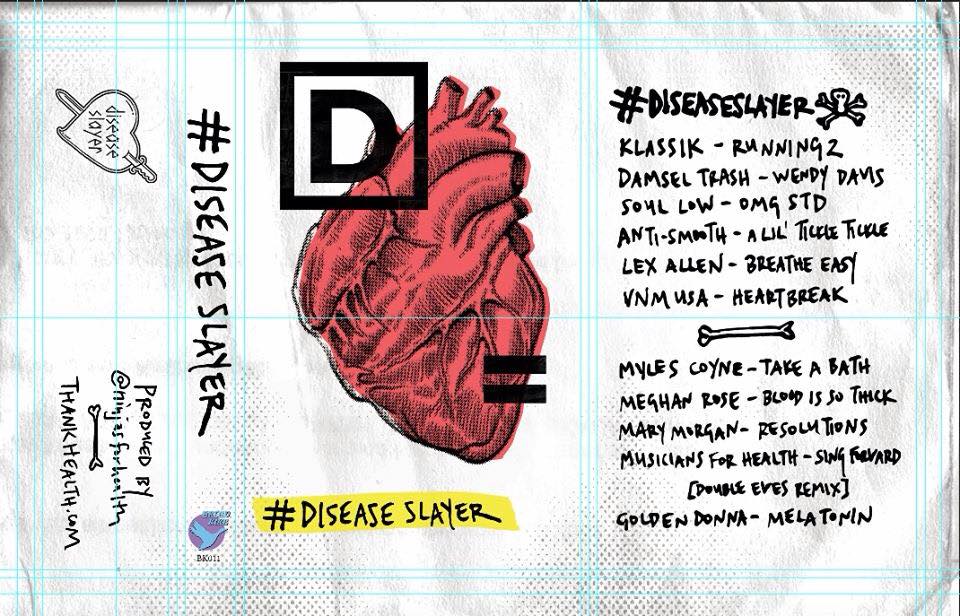 disease
slayer
PRODUCED BY
@ninjasforhealth
THANKHEALTH.COM
#DISEASE SLAYER
BK011
D
=
#DISEASE SLAYER
#DISEASESLAYER
KLASSIK - RUNNING 2
DAMSEL TRASH - WENDY DAVIS
SOUL LOW - OMG STD
ANTI-SMOOTH - A LIL' TICKLE TICKLE
LEX ALLEN - BREATHE EASY
VNM USA - HEARTBREAK
MYLES COYNE - TAKE A BATH
MEGHAN ROSE - BLOOD IS SO THICK
MARY MORGAN - RESOLUTIONS
MUSICIANS FOR HEALTH - SING FORVARD
[DOUBLE EVES REMIX]
GOLDEN DONNA - MELATONIN